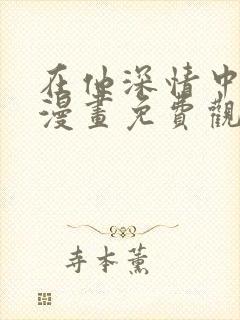 在他深情中
漫畫免費觀
寺本薰